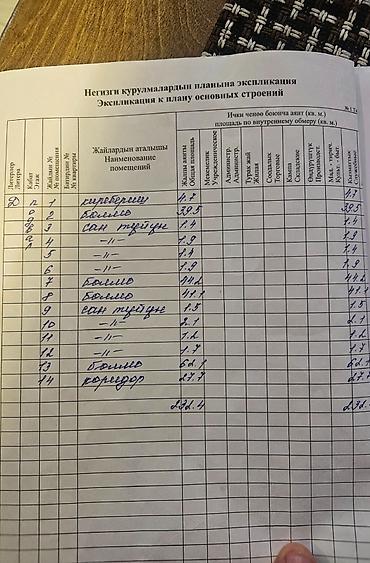 Негизги курулмалардын планына экспликация
Экспликация к плану основных строений
Ички ченөө боюнча аянт (кв. м.)
площадь по внутреннему обмеру (кв. м.)
Литерлор
Литера
Кабат
Этаж
Жайдын №
№ помещения
Батирдин №
№ квартиры
Жайлардын аталышы
Наименование
помещений
Жалпы аянты
Общая площадь
Мекемелик
Учрежденическое
Админстр.
Администр.
Турак жай
Жилая
Соодалык
Торговые
Кампа
Складские
Өндүрүштүк
Производст.
Кызматтык
Служебные
Д п 1 киребериш 4.7 4.7
2 бөлмө 39.5 39.5
3 сан түйүн 1.4 1.4
4 -"- 1.9 1.9
5 -"- 1.4 1.4
6 -"- 1.9 1.9
7 бөлмө 44.2 44.2
8 бөлмө 41.1 41.1
9 сан түйүн 1.5 1.5
10 -"- 2.1 2.1
11 -"- 1.2 1.2
12 -"- 1.7 1.7
13 бөлмө 62.1 62.1
14 коридор 27.7 27.7
232.4 232.